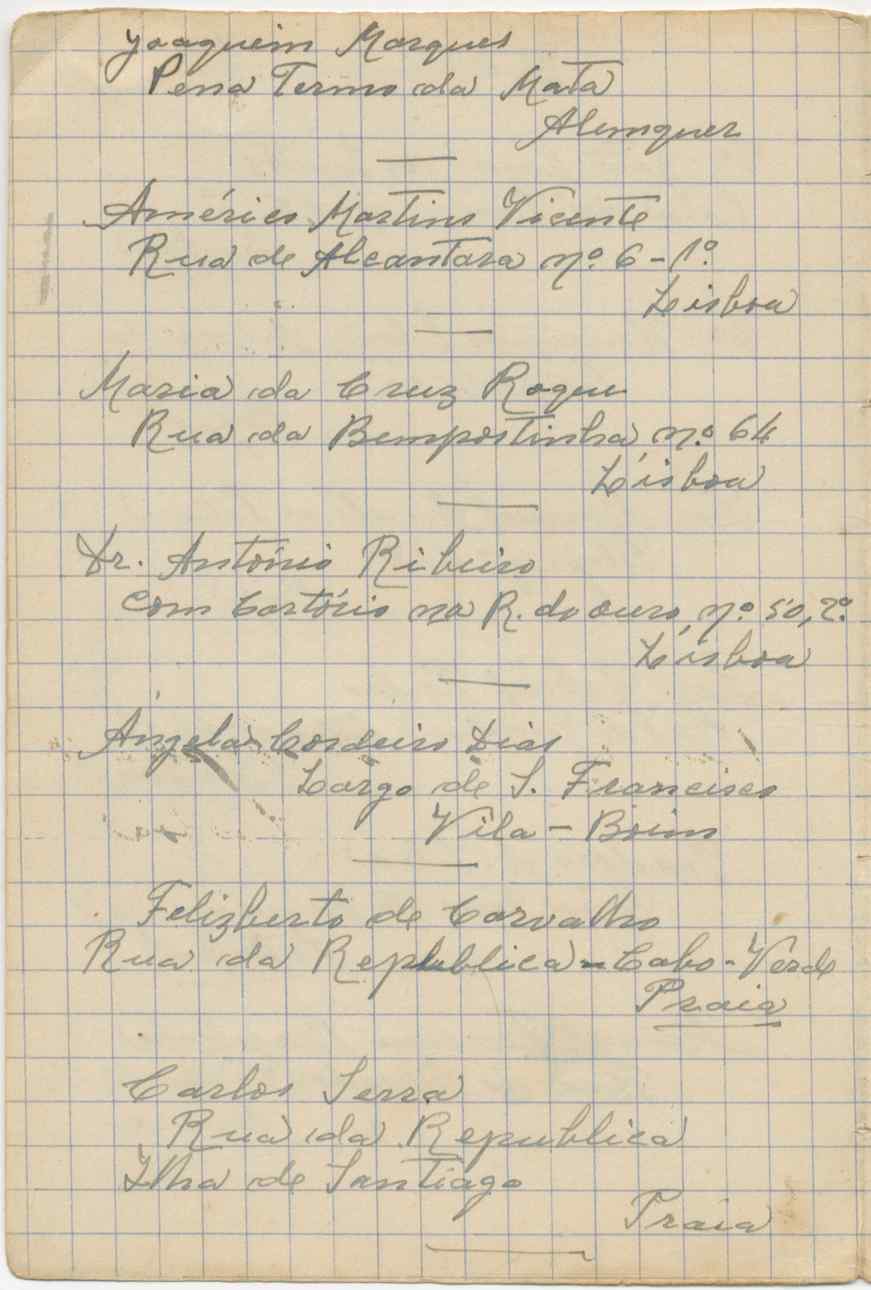 Joaquim Marques
Pena Termo da Mata
Alemquer
Américo Martins Vicente
Rua de Alcantara nº. 6 - 1º.
Lisboa
Maria da Cruz Roque
Rua da Bempostinha nº. 64
Lisboa
Dr. António Ribeiro
Com Cartório na R. do Ouro, nº. 50, 2º.
Lisboa
Ángela Cordeiro Dias
Largo de S. Francisco
Vila - Boim
Felizberto de Carvalho
Rua da Republica - Cabo-Verde
Praia
Carlos Serra
Rua da Republica
Ilha de Santiago
Praia